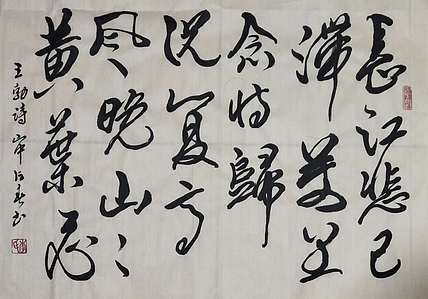 長江悲已
滯萬里
念將歸
況復高
風晚山〻
黃葉飛
王勃詩山中 書